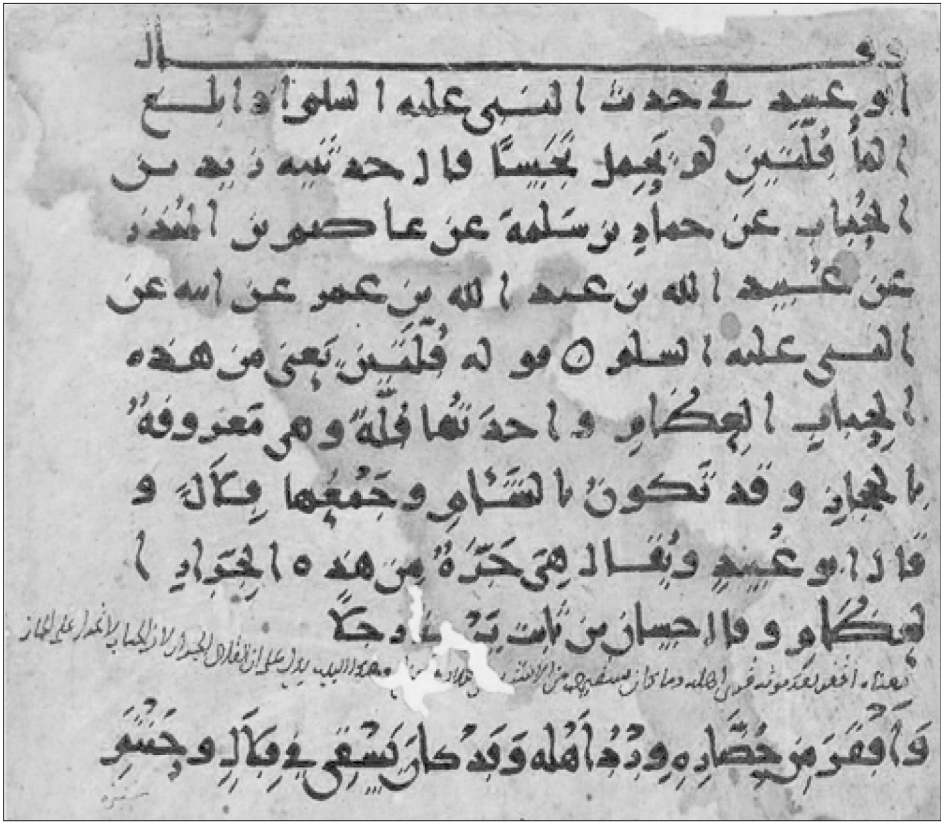 وقال
ابو عبيد في حديث النبي عليه السلم اذا بلغ
الماءُ قُلَّتَينِ لم يَحمِل نَجَسًا قال حدثنيه زيد بن
الحُبابِ عن حمادِ بن سَلمةَ عن عاصم بن المُنذر
عن عُبيد الله بن عبد الله بن عمر عن ابيه عن
النبي عليه السلم ٥ قوله قُلَّتَينِ يَعني من هذه
الحِبابِ العِظامِ واحدتُها قُلّةٌ وهي مَعروفةٌ
بالحجازِ وقد تَكونُ بالشَّامِ وجَمْعُها قِلالٌ و
قال ابو عُبيدٍ ويُقال هِيَ جَرَّةٌ مِن هذه الجِرَارِ ا
لعِظامِ وقال حسان بن ثابت رجلا
اقفر بعد موته اهله وما كان من وهذا البيت يدل على ان القلال الجرار لا الحباب
وَأَقْفَرَ مِن حُضَّارِهِ وِرْدُ أَهْلِهِ وَقَدْ كانَ يُسْقَى في قِلالٍ وحَنْتَمِ